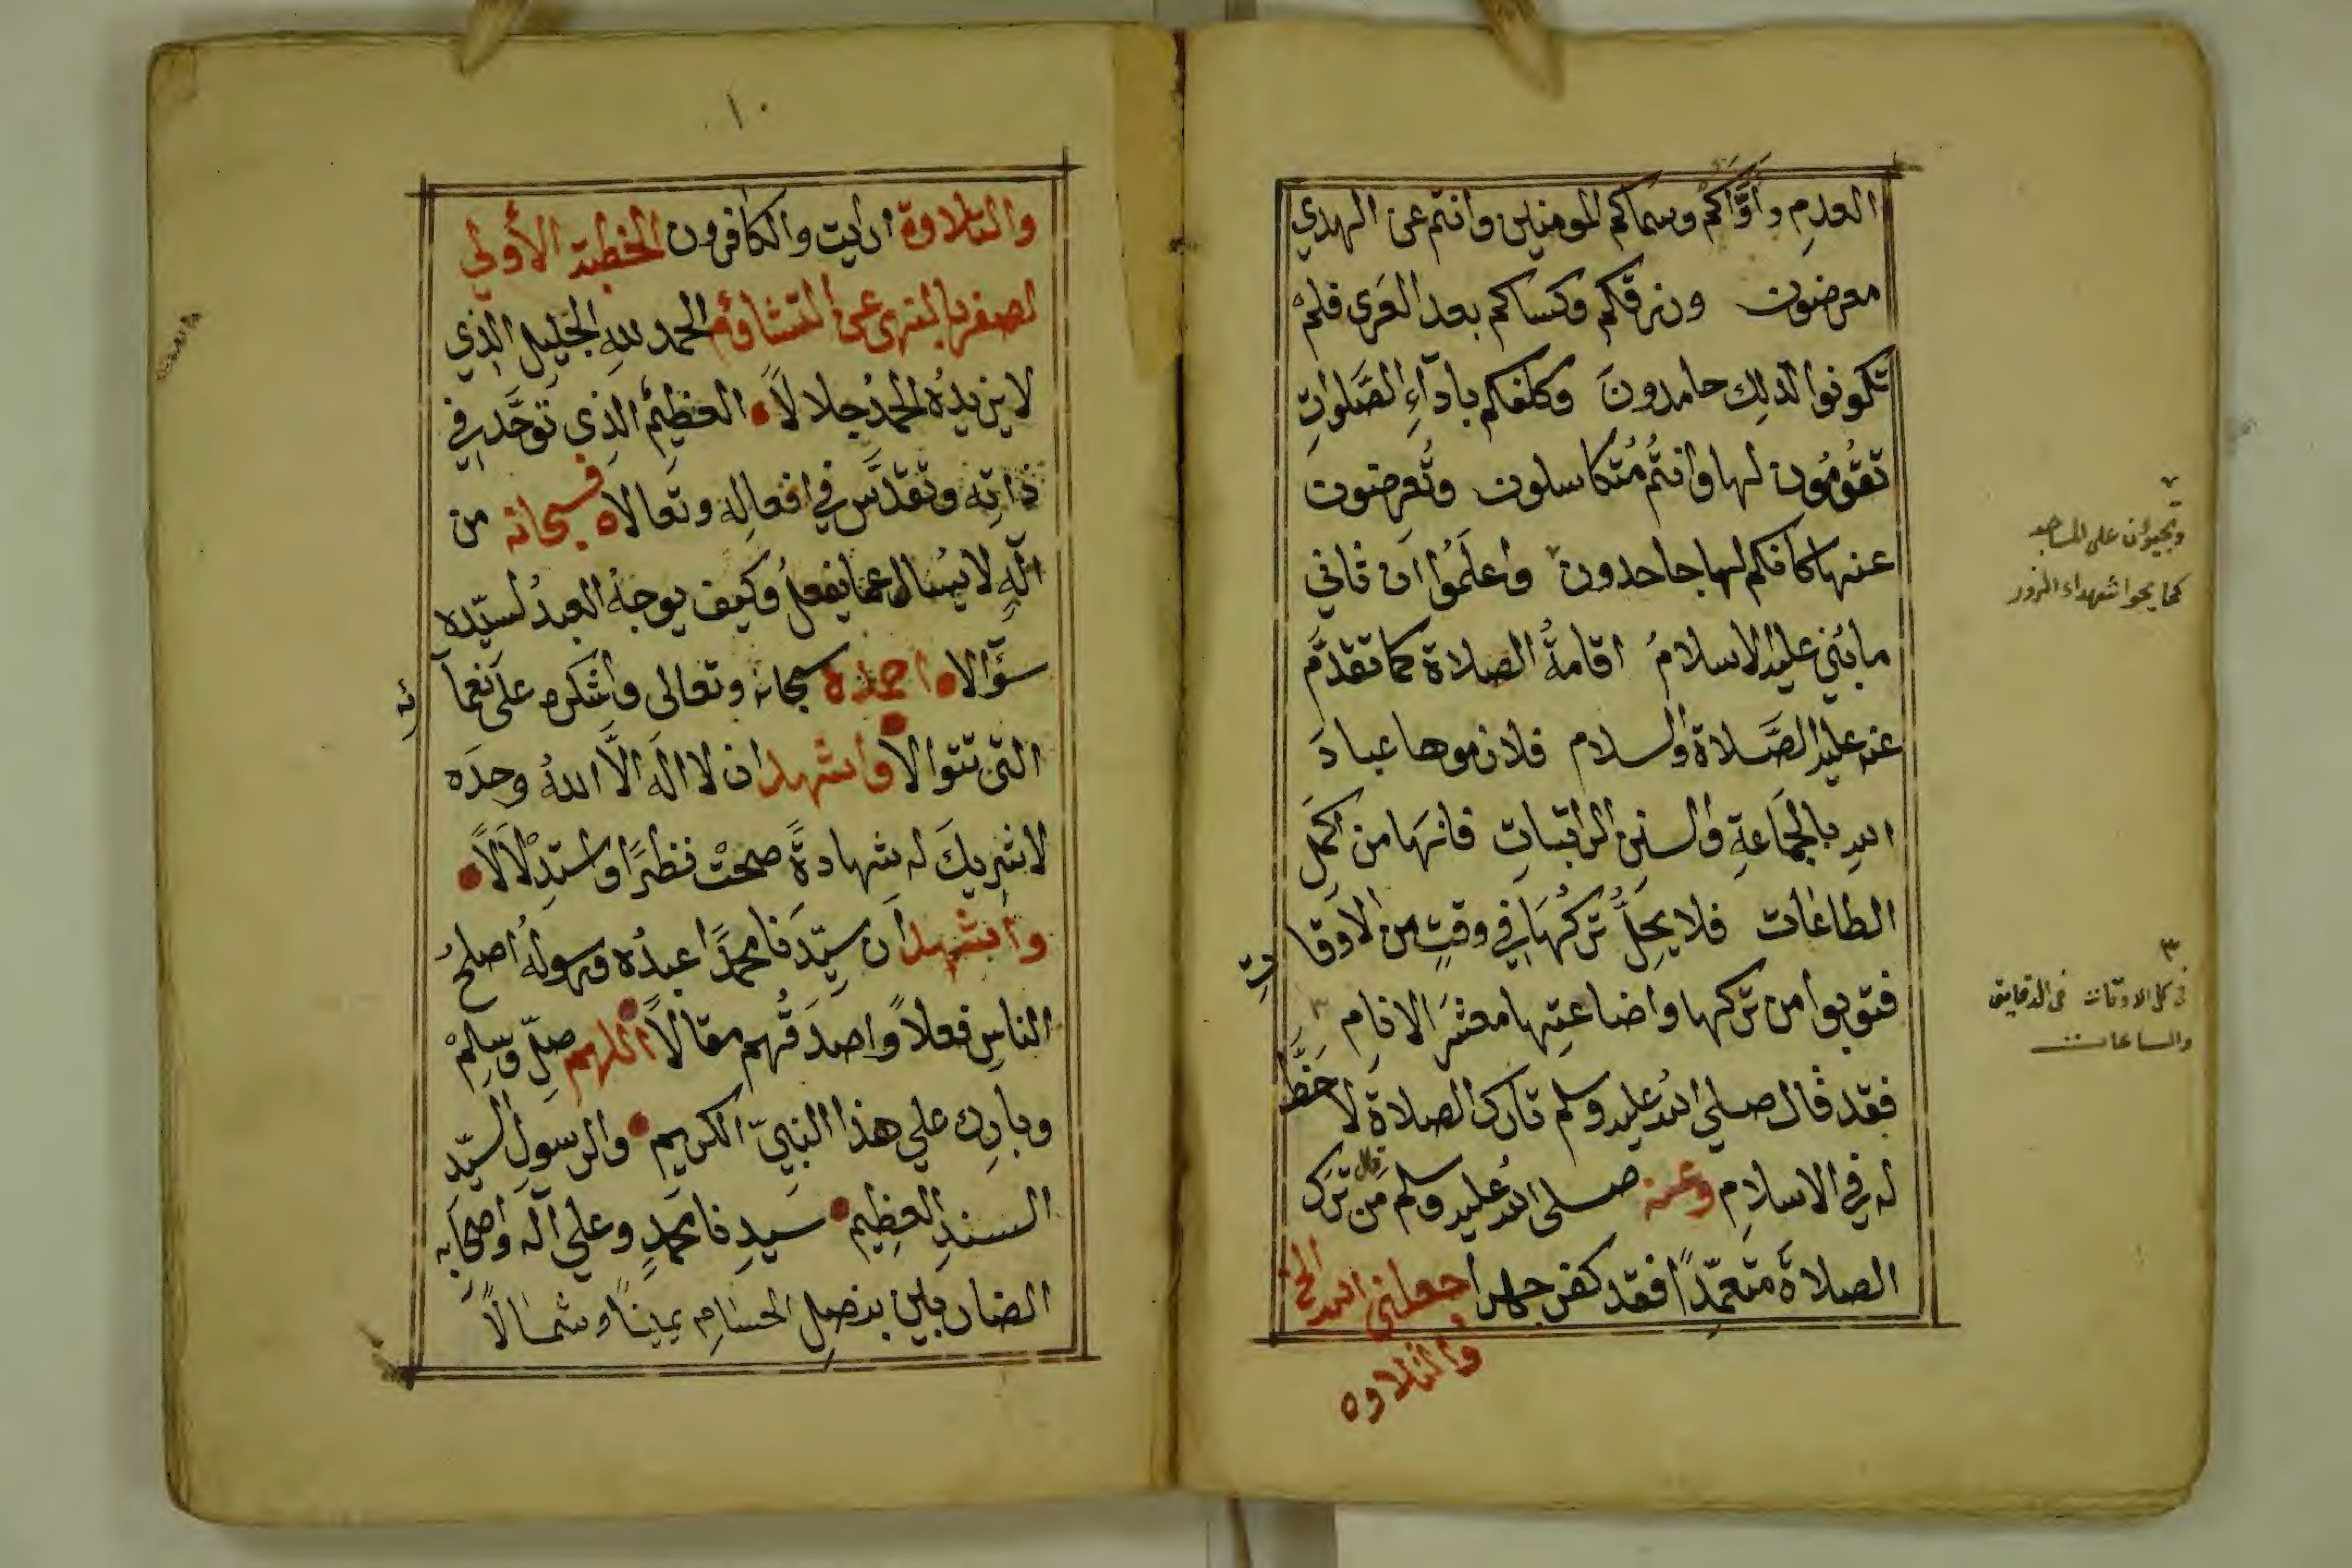 العدمِ واَوَّاكُم وسماكم المومنين وانتم عن الهدي
معرضون ورزقكم وكساكم بعد العَرى فلمْ
تكونوا لذلك حامدونَ وكلفكم باداَءِ الصَّلواتِ
تقُومُون لها وانتُم مُتكاسلون وتُعرضون
عنها كانكم لها جاحدون واعلَمُوا ان ثاني
ما بُني عليه الاسلامُ اقامةُ الصلاة كما تقدَّم
عنه عليه الصَّلاة والسلام فلازموها عبادَ
اللهِ بالجمَاعةِ والسننِ الراتباتِ فانهَا من اكملِ
الطاعات فلا يحِلُّ تركُهَا في وقتٍ من الاوقا
تِ
فتوبوا من تركها واضاعتِها معشَرَ الانامِ ٣
فقد قال صلي اللهُ عليه وسلم تارك الصلاة لا حَظَّ
له في الاسلامِ وعنه صلى الله عليه وسلم قال مَن تَرَك
الصلاةَ متعمّدًا فقد كفر جهارا جعلني الله الخ
والتلاوه
٢
وتجيؤن على المساجد
كما يجوا شهداء الزور
٣
في كل الاوقات في الدقايق
والساعات
١٠
والتلاوة ارايت والكافرون الخطبة الأولي
لصفر بالنهى عن التشاؤم الحمد للهِ الجَليلِ الذي
لا يزيدُهُ الحمدُ جلالاً العظيمُ الذي تَوَحَّد في
ذاتِه وتقدَّس في افعالِه وتعالا فسبحانه من
الهٍ لا يُسال عما يفعلُ وكيف يوجهُ العبدُ لسيّده
سؤَالا احمده سبحانه وتعالى واشكره علَى نعمآ
ئه
التي تتوالا واشهد ان لا اله الّا اللهُ وحدَه
لا شريكَ له شهادةً صحتْ نظرًا واستِدْلَالاً
واشهد ان سيّدَنا محمدًا عبدُه ورسولهُ اصلحُ
الناسِ فعلاً واصدَقُهم مقالاً اللهم صلّ وسلمْ
وبارك علي هذا النبيّ الكريم والرسولِ السيّد
السندِ العظيم سيدِنا محمدٍ وعلي آله واصحابه
الضاربين بنصلِ الحسامِ يمينًا وشمالاً